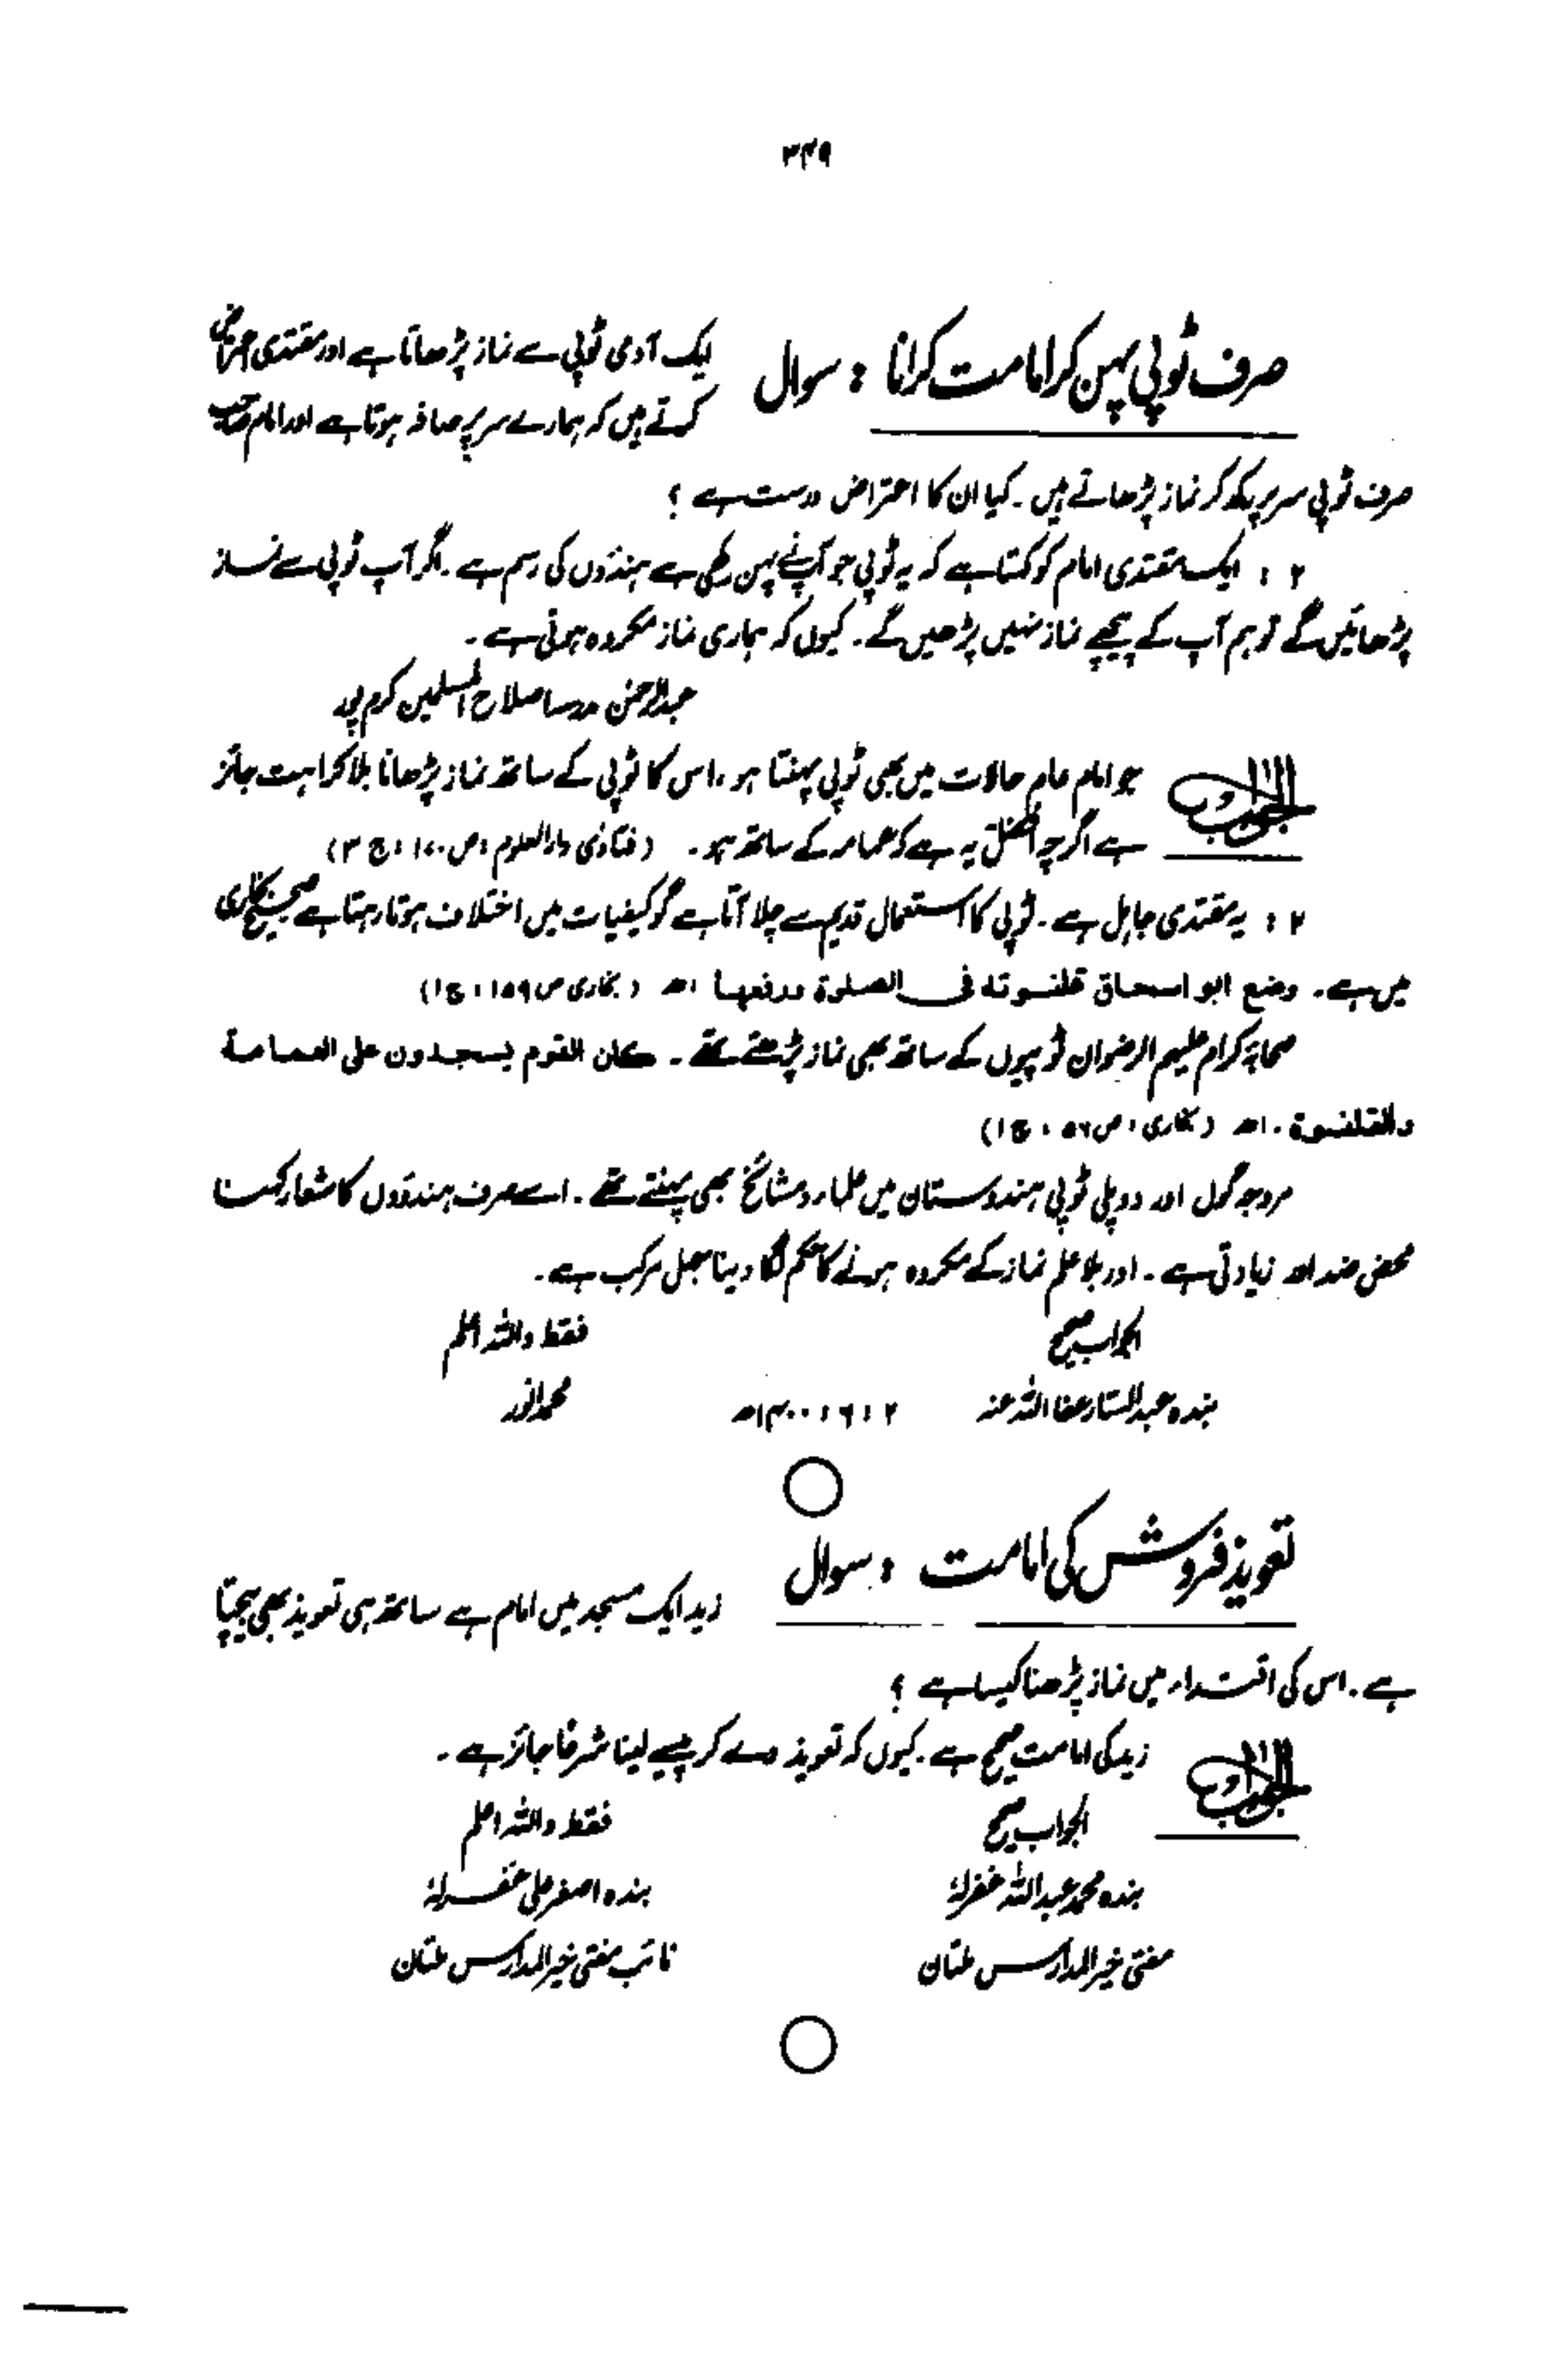 ۳۴۹
صرف ٹوپی پہن کر امامت کرانا : سوال
ایک آدمی ٹوپی سے نماز پڑھاتا ہے اور مقتدی اعتراض
کرتے ہیں کہ ہمارے سر پر صافہ ہوتا ہے اور امام صاحب
صرف ٹوپی سر پر رکھ کر نماز پڑھاتے ہیں ۔ کیا ان کا اعتراض درست ہے ؟
۲ : ایک مقتدی امام کو کہتا ہے کہ یہ ٹوپی جو آپنے پہن رکھی ہے ہندوؤں کی رسم ہے ۔ اگر آپ ٹوپی سے نماز
پڑھائیں گے تو ہم آپ کے پیچھے نماز نہیں پڑھیں گے ۔ کیوں کہ ہماری نماز مکروہ ہوتی ہے ۔
عبدالرحمٰن مدرسہ اصلاح المسلمین کرم پور
الجواب
جو امام عام حالات میں بھی ٹوپی پہنتا ہو ، اس کا ٹوپی کے ساتھ نماز پڑھانا بلا کراہت جائز
ہے اگرچہ افضل یہ ہے کہ عمامہ کے ساتھ ہو ۔ ( فتاوٰی دارالعلوم ، ص ۱۷۰ ، ج ۳ )
۲ : یہ مقتدی جاہل ہے ۔ ٹوپی کا استعمال قدیم سے چلا آتا ہے گو کیفیات میں اختلاف ہوتا رہتا ہے صحیح بخاری
میں ہے ۔ وضع ابو اسحاق قلنسوتہ فی الصلوۃ ورفعہا اھ ( بخاری ص ۱۵۹ ، ج ۱ )
صحابہ کرام علیہم الرضوان ٹوپیوں کے ساتھ بھی نماز پڑھتے تھے ۔ کان القوم یسجدون علی العمامۃ
والقلنسوۃ ۔ اھ ( بخاری ، ص ۵۶ ، ج ۱ )
مروجہ گول اور دوپلی ٹوپی ہندوستان میں علماء و مشائخ بھی پہنتے تھے ۔ اسے صرف ہندوؤں کا شعار کہنا
محض ضد اور زیادتی ہے ۔ اور بلا علم نماز کے مکروہ ہونے کا حکم لگا دینا جہل مرکب ہے ۔
الجواب صحیح فقط واللہ اعلم
بندہ عبدالستار عفا اللہ عنہ ۲ ؍ ۶ ؍ ۱۴۰۰ھ محمد انور
تعویذ فروش کی امامت : سوال
زید ایک مسجد میں امام ہے ساتھ ہی تعویذ بھی بیچتا
ہے ۔ اس کی اقتداء میں نماز پڑھنا کیسا ہے ؟
الجواب
زید کی امامت صحیح ہے ۔ کیوں کہ تعویذ دے کر پیسے لینا شرعًا جائز ہے ۔
الجواب صحیح فقط واللہ اعلم
بندہ محمد عبداللہ غفرلہٗ بندہ اصغر علی غفرلہٗ
مفتی خیر المدارس ملتان نائب مفتی خیر المدارس ملتان